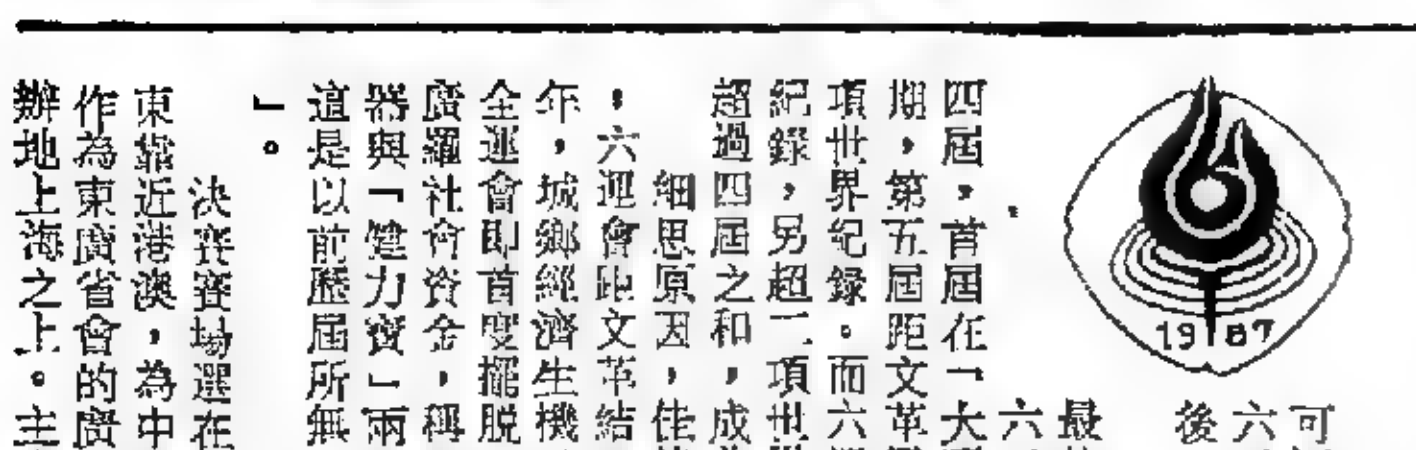 可
六
後
1987
最
六
四屆，首屆在「大
期，第五屆距文革
項世界紀錄。而六
紀錄，另超二項世
超過四屆之和，成
細思原因，佳
，六運會距文革結
年，城鄉經濟生機
全運會即首度擺脫
廣羅社會資金，稱
器與「健力寶」兩
這是以前歷屆所無
」。
決賽賽場選在
東靠近港澳，為中
作為東廣省會的廣
辦地上海之上。主